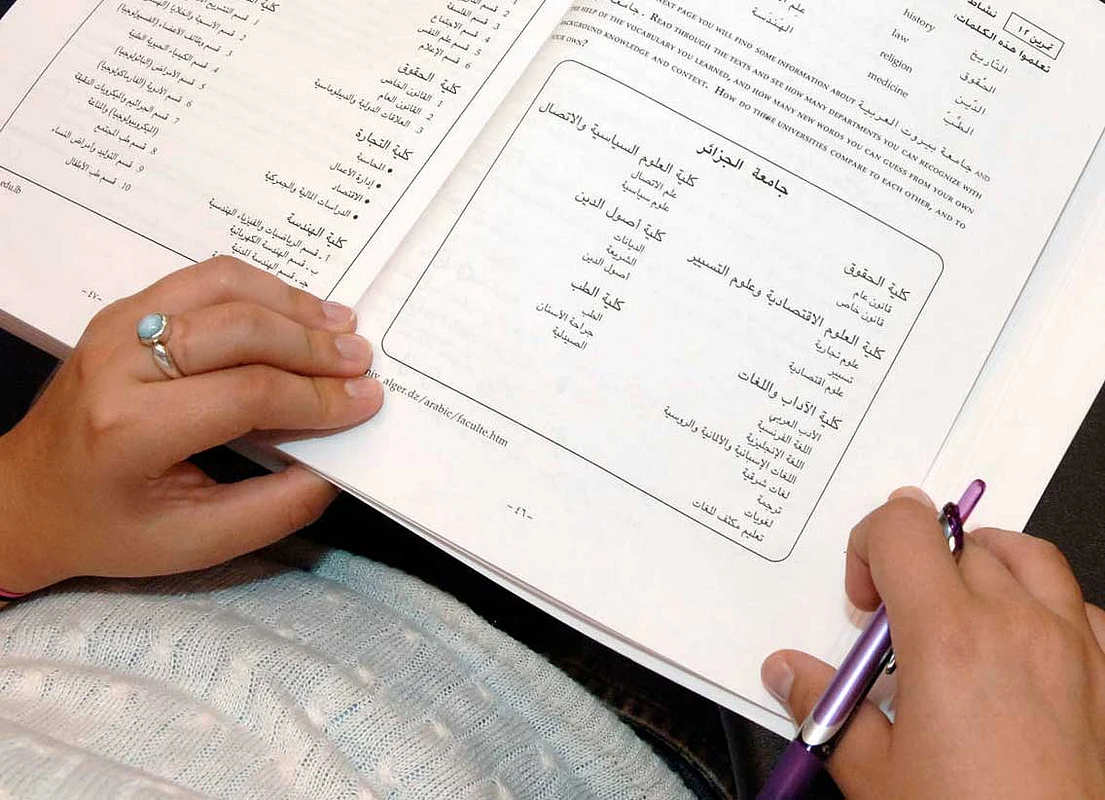 تمرين ١٢
نشاط
تعلموا هذه الكلمات:
history التّاريخ
law الحُقوق
religion الدّين
medicine الطِّبّ
علم
الهَندَسة
NEXT PAGE YOU WILL FIND SOME INFORMATION ABOUT جامعة بيروت العربية AND
جامعة. READ THROUGH THE TEXTS AND SEE HOW MANY DEPARTMENTS YOU CAN RECOGNIZE WITH
THE HELP OF THE VOCABULARY YOU LEARNED, AND HOW MANY NEW WORDS YOU CAN GUESS FROM YOUR OWN
BACKGROUND KNOWLEDGE AND CONTEXT. HOW DO THESE UNIVERSITIES COMPARE TO EACH OTHER, AND TO
YOUR OWN?
جامعة الجزائر
كلية الحقوق
قانون عام
قانون خاص
كلية العلوم الاقتصادية وعلوم التسيير
علوم تجارية
تسيير
علوم اقتصادية
كلية الآداب واللغات
الأدب العربي
اللغة الفرنسية
اللغة الإنجليزية
اللغات الإسبانية والألمانية والروسية
لغات شرقية
ترجمة
لغويات
تعليم مكثف للغات
كلية العلوم السياسية والاتصال
علم الاتصال
علوم سياسية
كلية أصول الدين
الديانات
الشريعة
أصول الدين
كلية الطب
الطب
جراحة الأسنان
الصيدلية
alger.dz/arabic/faculte.htm
-٤٦-
٣. قسم الاجتماع
٤. قسم علم النفس
٦. قسم الإعلام
كلية الحقوق
١. القانون الخاص
٢. القانون العام
٣. العلاقات الدولية والدبلوماسية
كلية التجارة
• المحاسبة
• إدارة الأعمال
• الاقتصاد
• الدراسات المالية والجمركية
كلية الهندسة
أ. قسم الرياضيات والفيزياء الهندسية
ب. قسم الهندسة الكهربائية
جـ. قسم الهندسة المدنية
١. قسم التشريح
٢. قسم الأنسجة والخلايا
٣. قسم وظائف الأعضاء (الفسيولوجيا)
٤. قسم الكيمياء الحيوية الطبية
٥. قسم الأمراض (الباثولوجيا)
٦. قسم الأدوية (الفارماكولوجيا)
٧. قسم الجراثيم والميكروبات الدقيقة
(الميكروبيولوجيا) والمناعة
٨. قسم طب المجتمع
٩. قسم التوليد وأمراض النساء
١٠. قسم طب الأطفال
edu.lb
-٤٧-